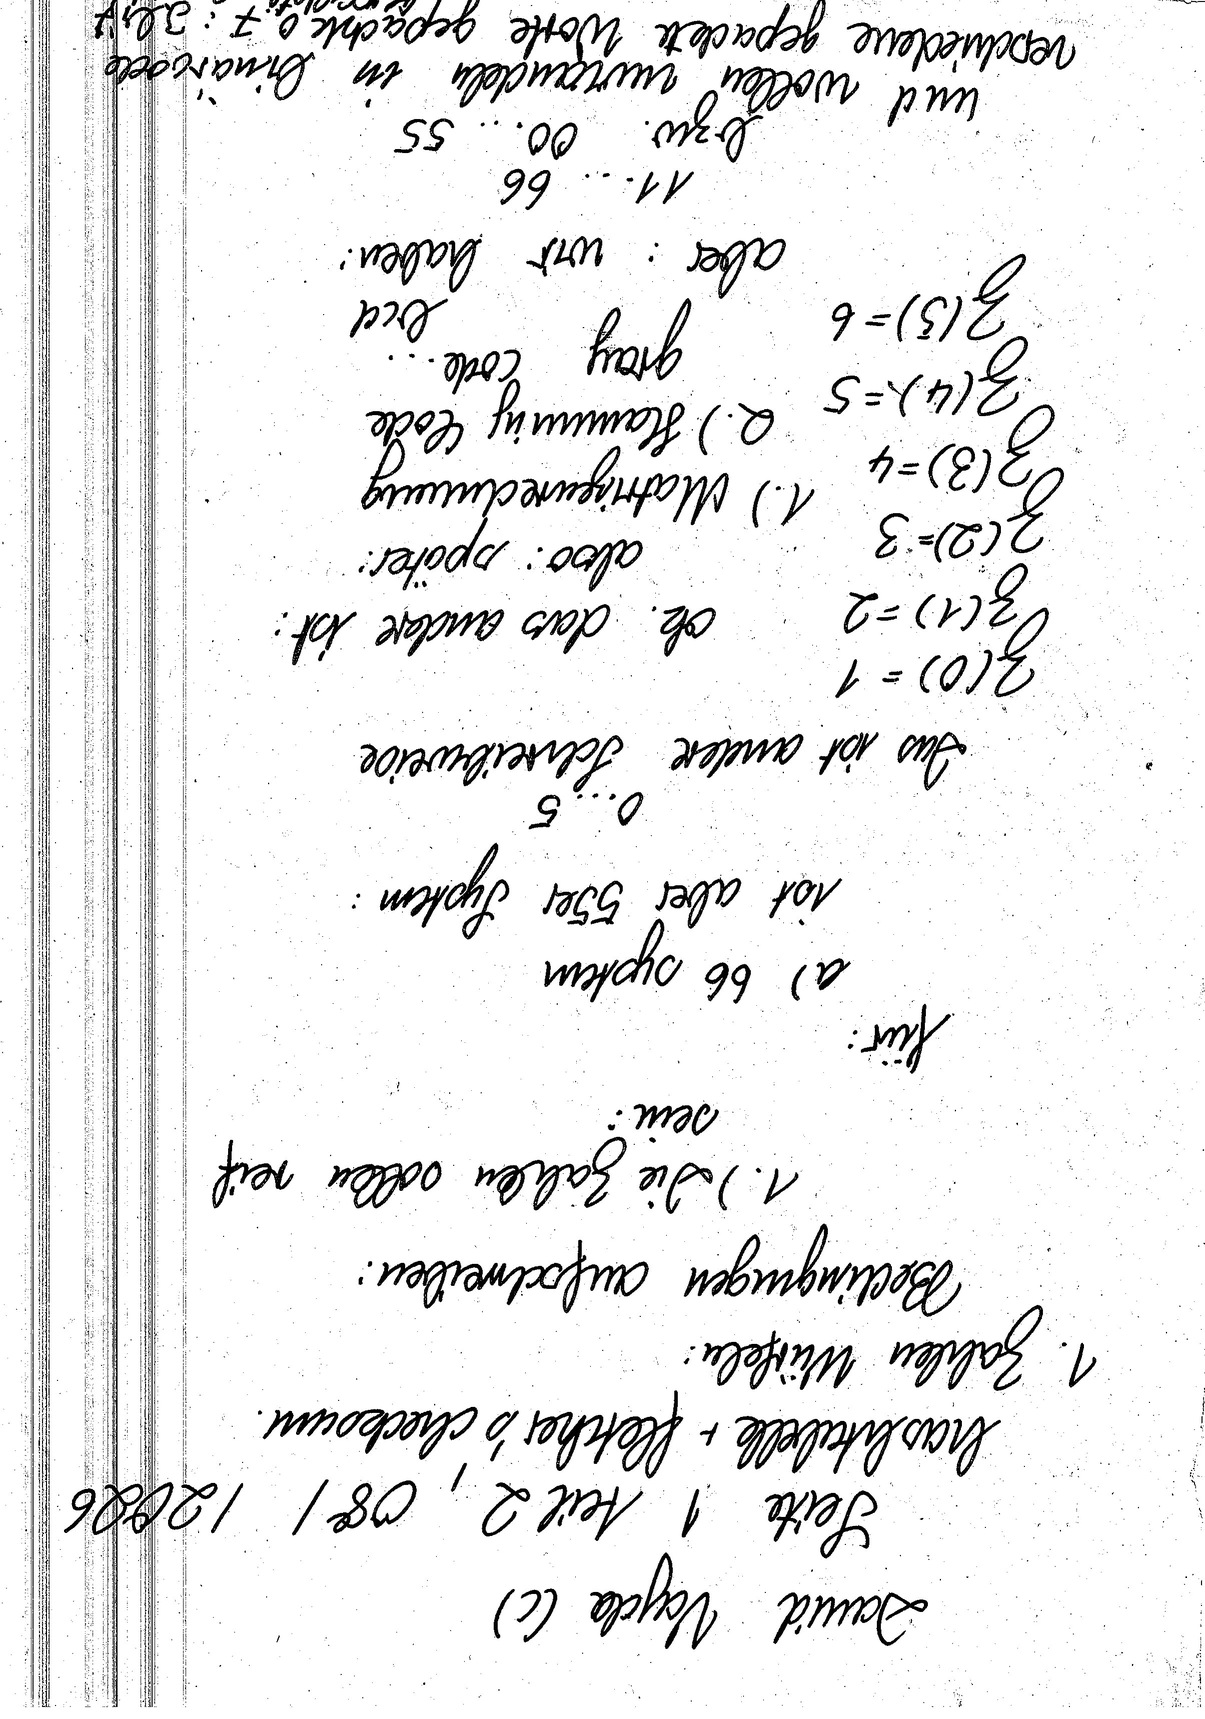 David Vajda (C)
Seite 1 teil 2, 08/12026
hashtabelle + fletcher's checksum.
1. Zahlen Würfeln:
Bedingungen aufschreiben:
1.) Die Zahlen sollen reif
sein:
für:
a) 66 system
ist aber 55er System:
0...5
Das ist andere Schreibweise
z(0) = 1
z(1) = 2
ok. das andere ist:
z(2) = 3
also: später:
z(3) = 4
1.) Matrizenrechnung
z(4) = 5
2.) Hamming Code
gray code...
z(5) = 6
bcd
aber: wir haben:
11... 66
bzw. 00... 55
und wollen umwandeln in binärcode
verschiedene gepackte Worte gepackte 6 7: